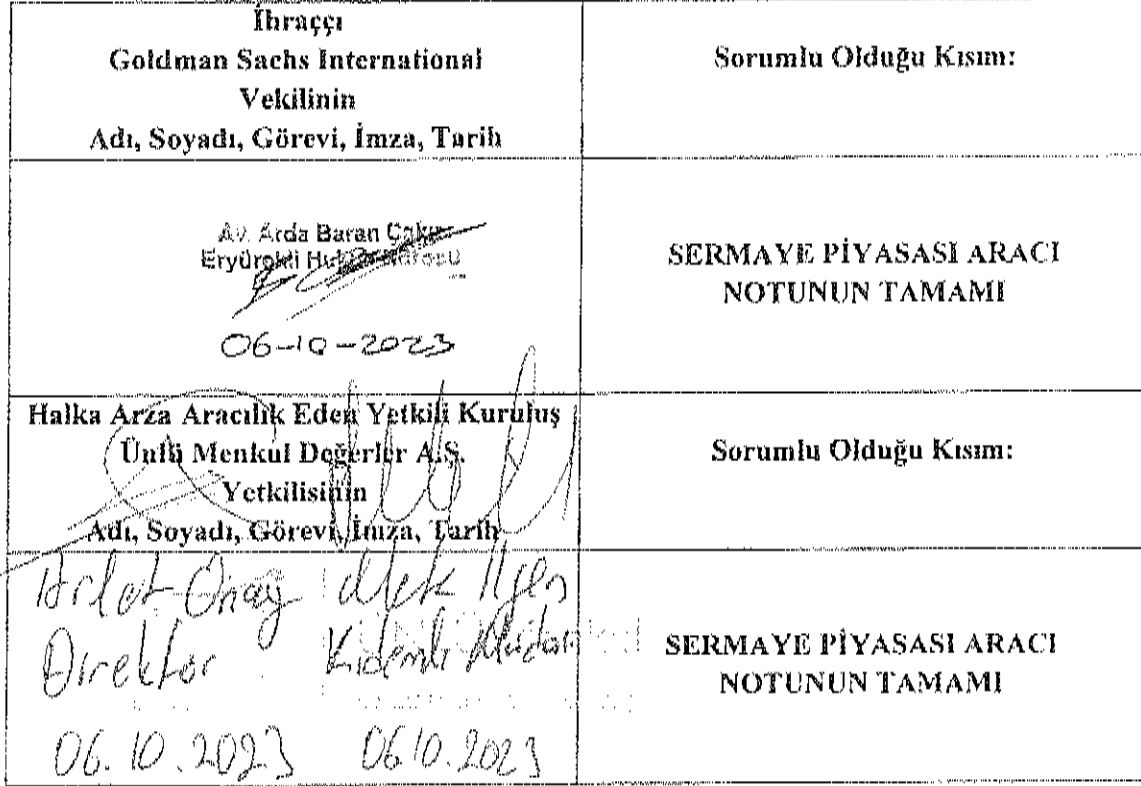 İhraççı
Goldman Sachs International
Vekilinin
Adı, Soyadı, Görevi, İmza, Tarih
Sorumlu Olduğu Kısım:
Av. Arda Baran
06-10-2023
SERMAYE PİYASASI ARACI
NOTUNUN TAMAMI
Halka Arza Aracılık Eden Yetkili Kuruluş
Ünlü Menkul Değerler A.Ş.
Yetkilisinin
Adı, Soyadı, Görevi, İmza, Tarih
Sorumlu Olduğu Kısım:
Direktör
Kıdemli Müdür
06.10.2023
06.10.2023
SERMAYE PİYASASI ARACI
NOTUNUN TAMAMI